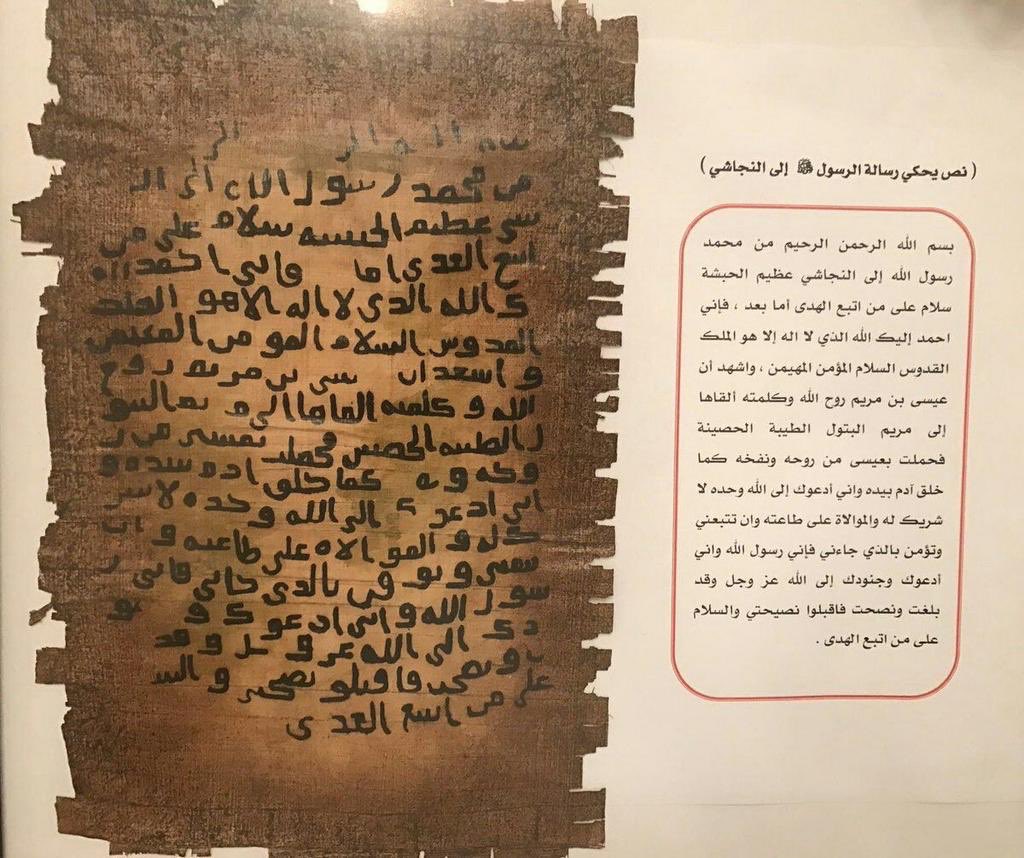 ( نص يحكي رسالة الرسول ﷺ إلى النجاشي )
بسم الله الرحمن الرحيم من محمد
رسول الله إلى النجاشي عظيم الحبشة
سلام على من اتبع الهدى أما بعد ، فإني
احمد إليك الله الذي لا اله إلا هو الملك
القدوس السلام المؤمن المهيمن ، واشهد أن
عيسى بن مريم روح الله وكلمته ألقاها
إلى مريم البتول الطيبة الحصينة
فحملت بعيسى من روحه ونفخه كما
خلق آدم بيده واني أدعوك إلى الله وحده لا
شريك له والموالاة على طاعته وان تتبعني
وتؤمن بالذي جاءني فإني رسول الله واني
أدعوك وجنودك إلى الله عز وجل وقد
بلغت ونصحت فاقبلوا نصيحتي والسلام
على من اتبع الهدى .
من محمد رسول الله الى
عظيم الحبسه سلام على من
اتبع الهدى اما فاني احمد
ك الله الذي لا اله الا هو الملك
القدوس السلام المومن المهيمن
و اسهد ان مريم روح
الله و كلمته
الطيبه
كما خلق ادم بيده و
اني ادعو ك الى الله وحده لا سر
ك له و الموالاه على طاعته و ان
بالذي
سول الله و اني ادعو ك و
د ك الى الله عز و جل و قد
فاقبلو و السـ
على من اتبع الهدى